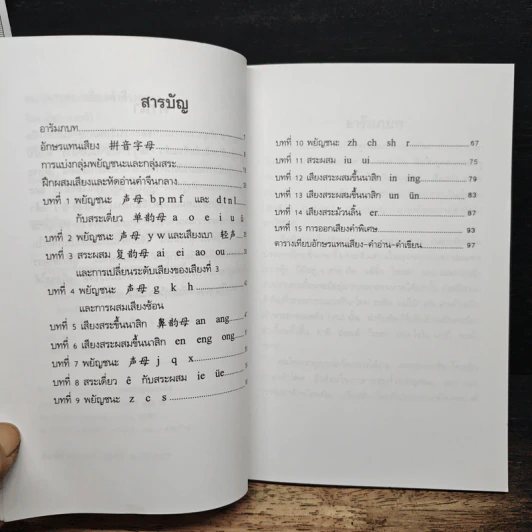 สารบัญ
อารัมภบท
อักษรแทนเสียง 拼音字母
การแบ่งกลุ่มพยัญชนะและกลุ่มสระ
ฝึกผสมเสียงและหัดอ่านคำจีนกลาง
บทที่ 1 พยัญชนะ 声母 b p m f และ d t n l
กับสระเดี่ยว 单韵母 a o e i u ü
บทที่ 2 พยัญชนะ 声母 y w และเสียงเบา 轻声
บทที่ 3 สระผสม 复韵母 ai ei ao ou
และการเปลี่ยนระดับเสียงของเสียงที่ 3
บทที่ 4 พยัญชนะ 声母 g k h
และการผสมเสียงซ้อน
บทที่ 5 เสียงสระขึ้นนาสิก 鼻韵母 an ang
บทที่ 6 เสียงสระผสมขึ้นนาสิก en eng ong
บทที่ 7 พยัญชนะ 声母 j q x
บทที่ 8 สระเดี่ยว ê กับสระผสม ie üe
บทที่ 9 พยัญชนะ z c s
บทที่ 10 พยัญชนะ zh ch sh r 67
บทที่ 11 สระผสม iu ui 75
บทที่ 12 เสียงสระผสมขึ้นนาสิก in ing 79
บทที่ 13 เสียงสระผสมขึ้นนาสิก un ün 83
บทที่ 14 เสียงสระม้วนลิ้น er 87
บทที่ 15 การออกเสียงคำพิเศษ 93
ตารางเทียบอักษรแทนเสียง-คำอ่าน-คำเขียน 97